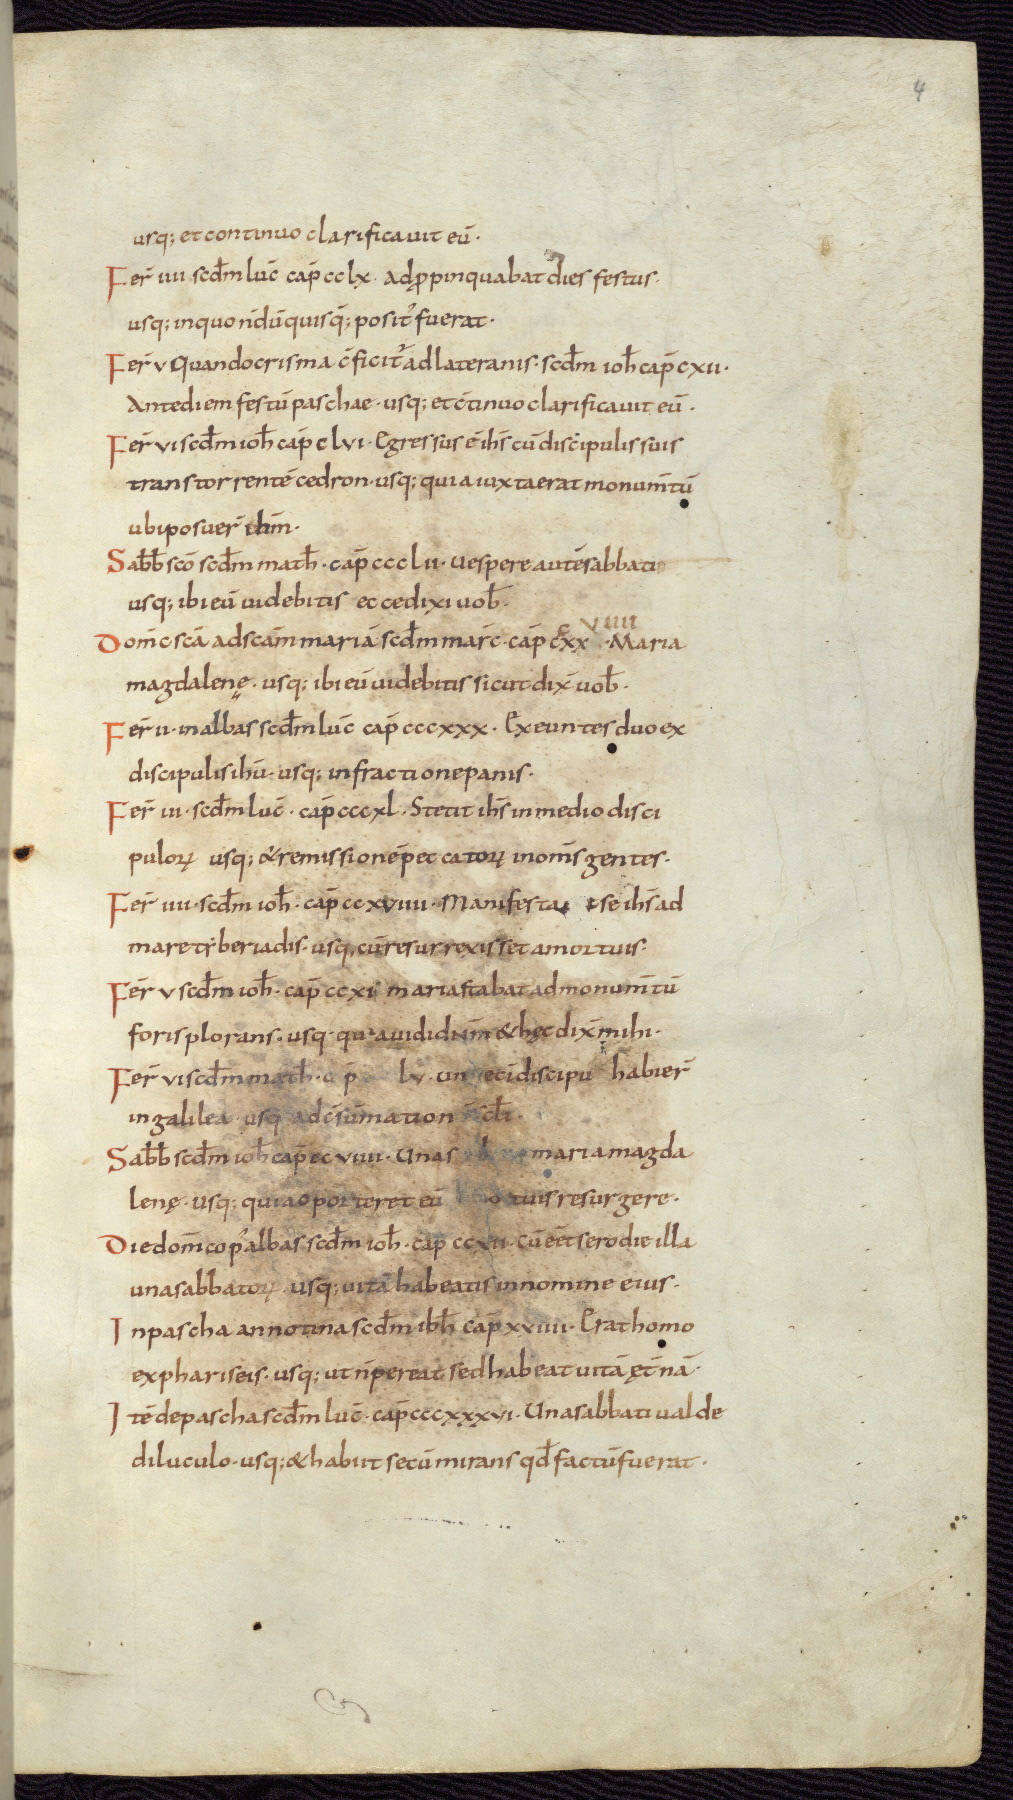 4
usq; et continuo clarificauit eū.
Fer̄ iiii scd̄m luc̄ cap̄ cclx. adp̱pinquabat dies festus.
usq; inquo nd̄ū quisq̄; posit᾽ fuerat.
Fer̄ v Quando crisma c̄ficit᾽ ad lateranis. scd̄m ioh̄ cap̄ cxii.
Ante diem festū paschae. usq; et c̄tinuo clarificauit eū.
Fer̄ vi scd̄m ioh̄ cap̄ clvi. Egressus ē ih̄s cū discipulis suis
trans torrentē cedron. usq; quia iuxta erat monum̄tū
ubi posuer̄ ih̄m.
Sabb̄ sc̄o scd̄m math̄. cap̄ ccclii. Uespere autē sabbati
usq; ibi eū uidebitis ecce dixi uob̄.
Dom̄c sc̄a ad sc̄am mariā scd̄m marc̄. cap̄ ccxx viiii. Maria
magdalenę. usq; ibi eū uidebitis sicut dix̄ uob̄.
Fer̄ ii. in albas scd̄m luc̄ cap̄ cccxxx. Exeuntes duo ex
discipulis ih̄u. usq; in fractione panis.
Fer̄ iii. scd̄m luc̄. cap̄ cccxl. Stetit ih̄s in medio disci
pulorꝝ usq; & remissionē peccatorꝝ in om̄s gentes.
Fer̄ iiii. scd̄m ioh̄. cap̄ ccxviiii. Manifesta se ih̄s ad
mare tyberiadis. usq; cū resurrexisset a mortuis.
Fer̄ v scd̄m ioh̄. cap̄ ccxi maria stabat ad monum̄tū
foris plorans. usq; quia uidi dn̄m & hęc dix̄ mihi.
Fer̄ vi scd̄m math̄. lv. discipu habier̄
in galilea usq; ad c̄sūmation
Sabb̄ scd̄m ioh̄ cap̄ ccviiii. Una maria magda
lenę. usq; quia oporteret eū tuis resurgere.
Die dom̄co p᾽ albas scd̄m ioh̄. cap̄ ccxii. Cū eēt sero die illa
una sabbatorꝝ. usq; uitā habeatis in nomine eius.
In pascha annotina scd̄m ioh̄ cap̄ xxiiii. Erat homo
ex phariseis. usq; ut n̄ pereat sed habeat uitā ęt̄nā.
Itē de pascha scd̄m luc̄. cap̄ cccxxxvi. Una sabbati ualde
diluculo. usq; & habiit secū mirans qd̄ factū fuerat.